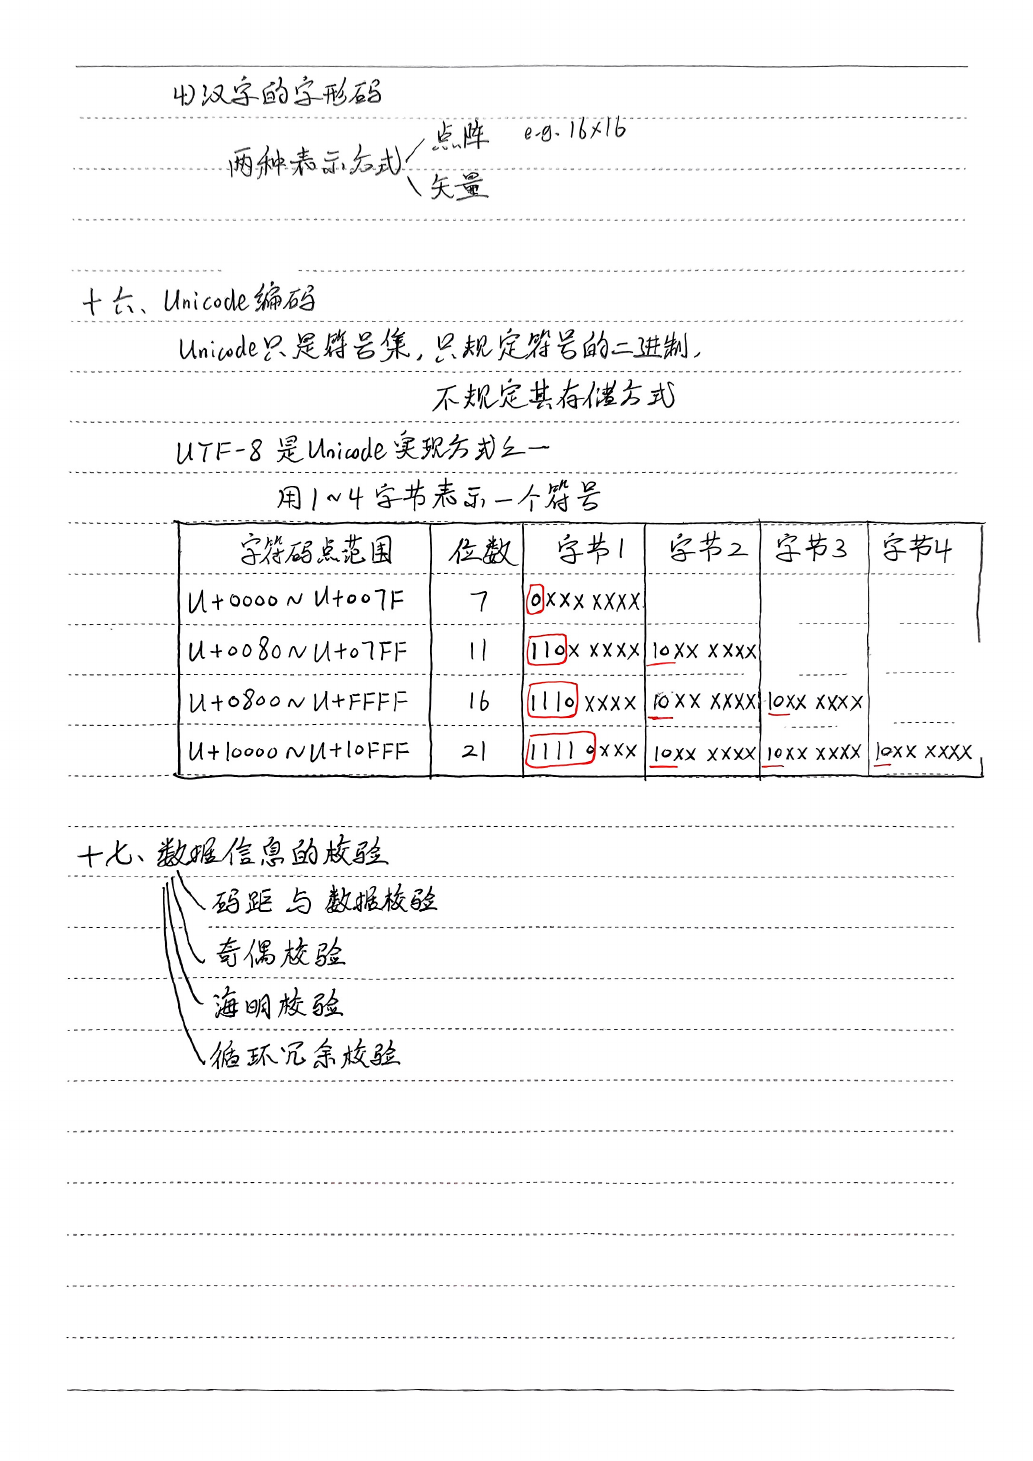 4)汉字的字形码
点阵 e.g. 16×16
两种表示方式
矢量
十六、Unicode编码
Unicode只是符号集,只规定符号的二进制,
不规定其存储方式
UTF-8 是Unicode 实现方式之一
用1~4字节表示一个符号
字符码点范围 位数 字节1 字节2 字节3 字节4
U+0000~U+007F 7 0XXX XXXX
U+0080~U+07FF 11 110X XXXX 10XX XXXX
U+0800~U+FFFF 16 1110 XXXX 10XX XXXX 10XX XXXX
U+10000~U+10FFF 21 1111 0XXX 10XX XXXX 10XX XXXX 10XX XXXX
十七、数据信息的校验
码距与数据校验
奇偶校验
海明校验
循环冗余校验